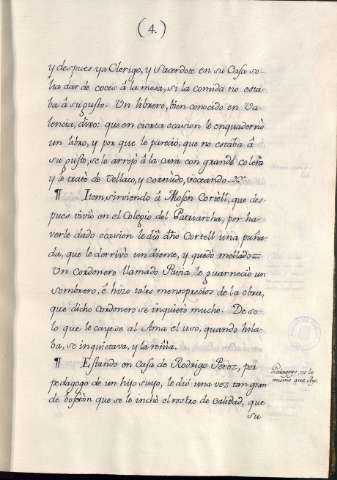 (4.)
y despues ya Clerigo, y Sacerdote en su Casa so-
lia dar de coces à la mesa, si la comida no esta-
ba à su gusto. Un librero, bien conocido en Va-
lencia, dixo: que en cierta ocasion le enquadernò
un libro, y por que le pareciò, que no estaba à
su gusto, se lo arrojò à la cara con grande colera
y le tratò de Vellaco, y cornudo, voceando.
¶ Item sirviendo à Mosen Cortell, que des-
pues vivio en el Colegio del Patriarcha, por ha-
verle dado ocasion le diò dho Cortell una puña-
da, que le derrivò un diente, y quedò mellado=
Un Cordonero llamado Pavia le guarneciò un
sombrero, è hizo tales menosprecios de la obra,
que dicho Cordonero se inquietò mucho. De so-
lo que le cayese al Ama el uso, quando hila-
ba, se inquietava, y la reñia.
¶ Estando en Casa de Rodrigo Perez, por
pedagogo de un hijo suyo, le diò una vez tan gran-
de bofeton que se le inchò el rostro de calidad, que
su
Pedagogo, es lo
mismo que Ayo.